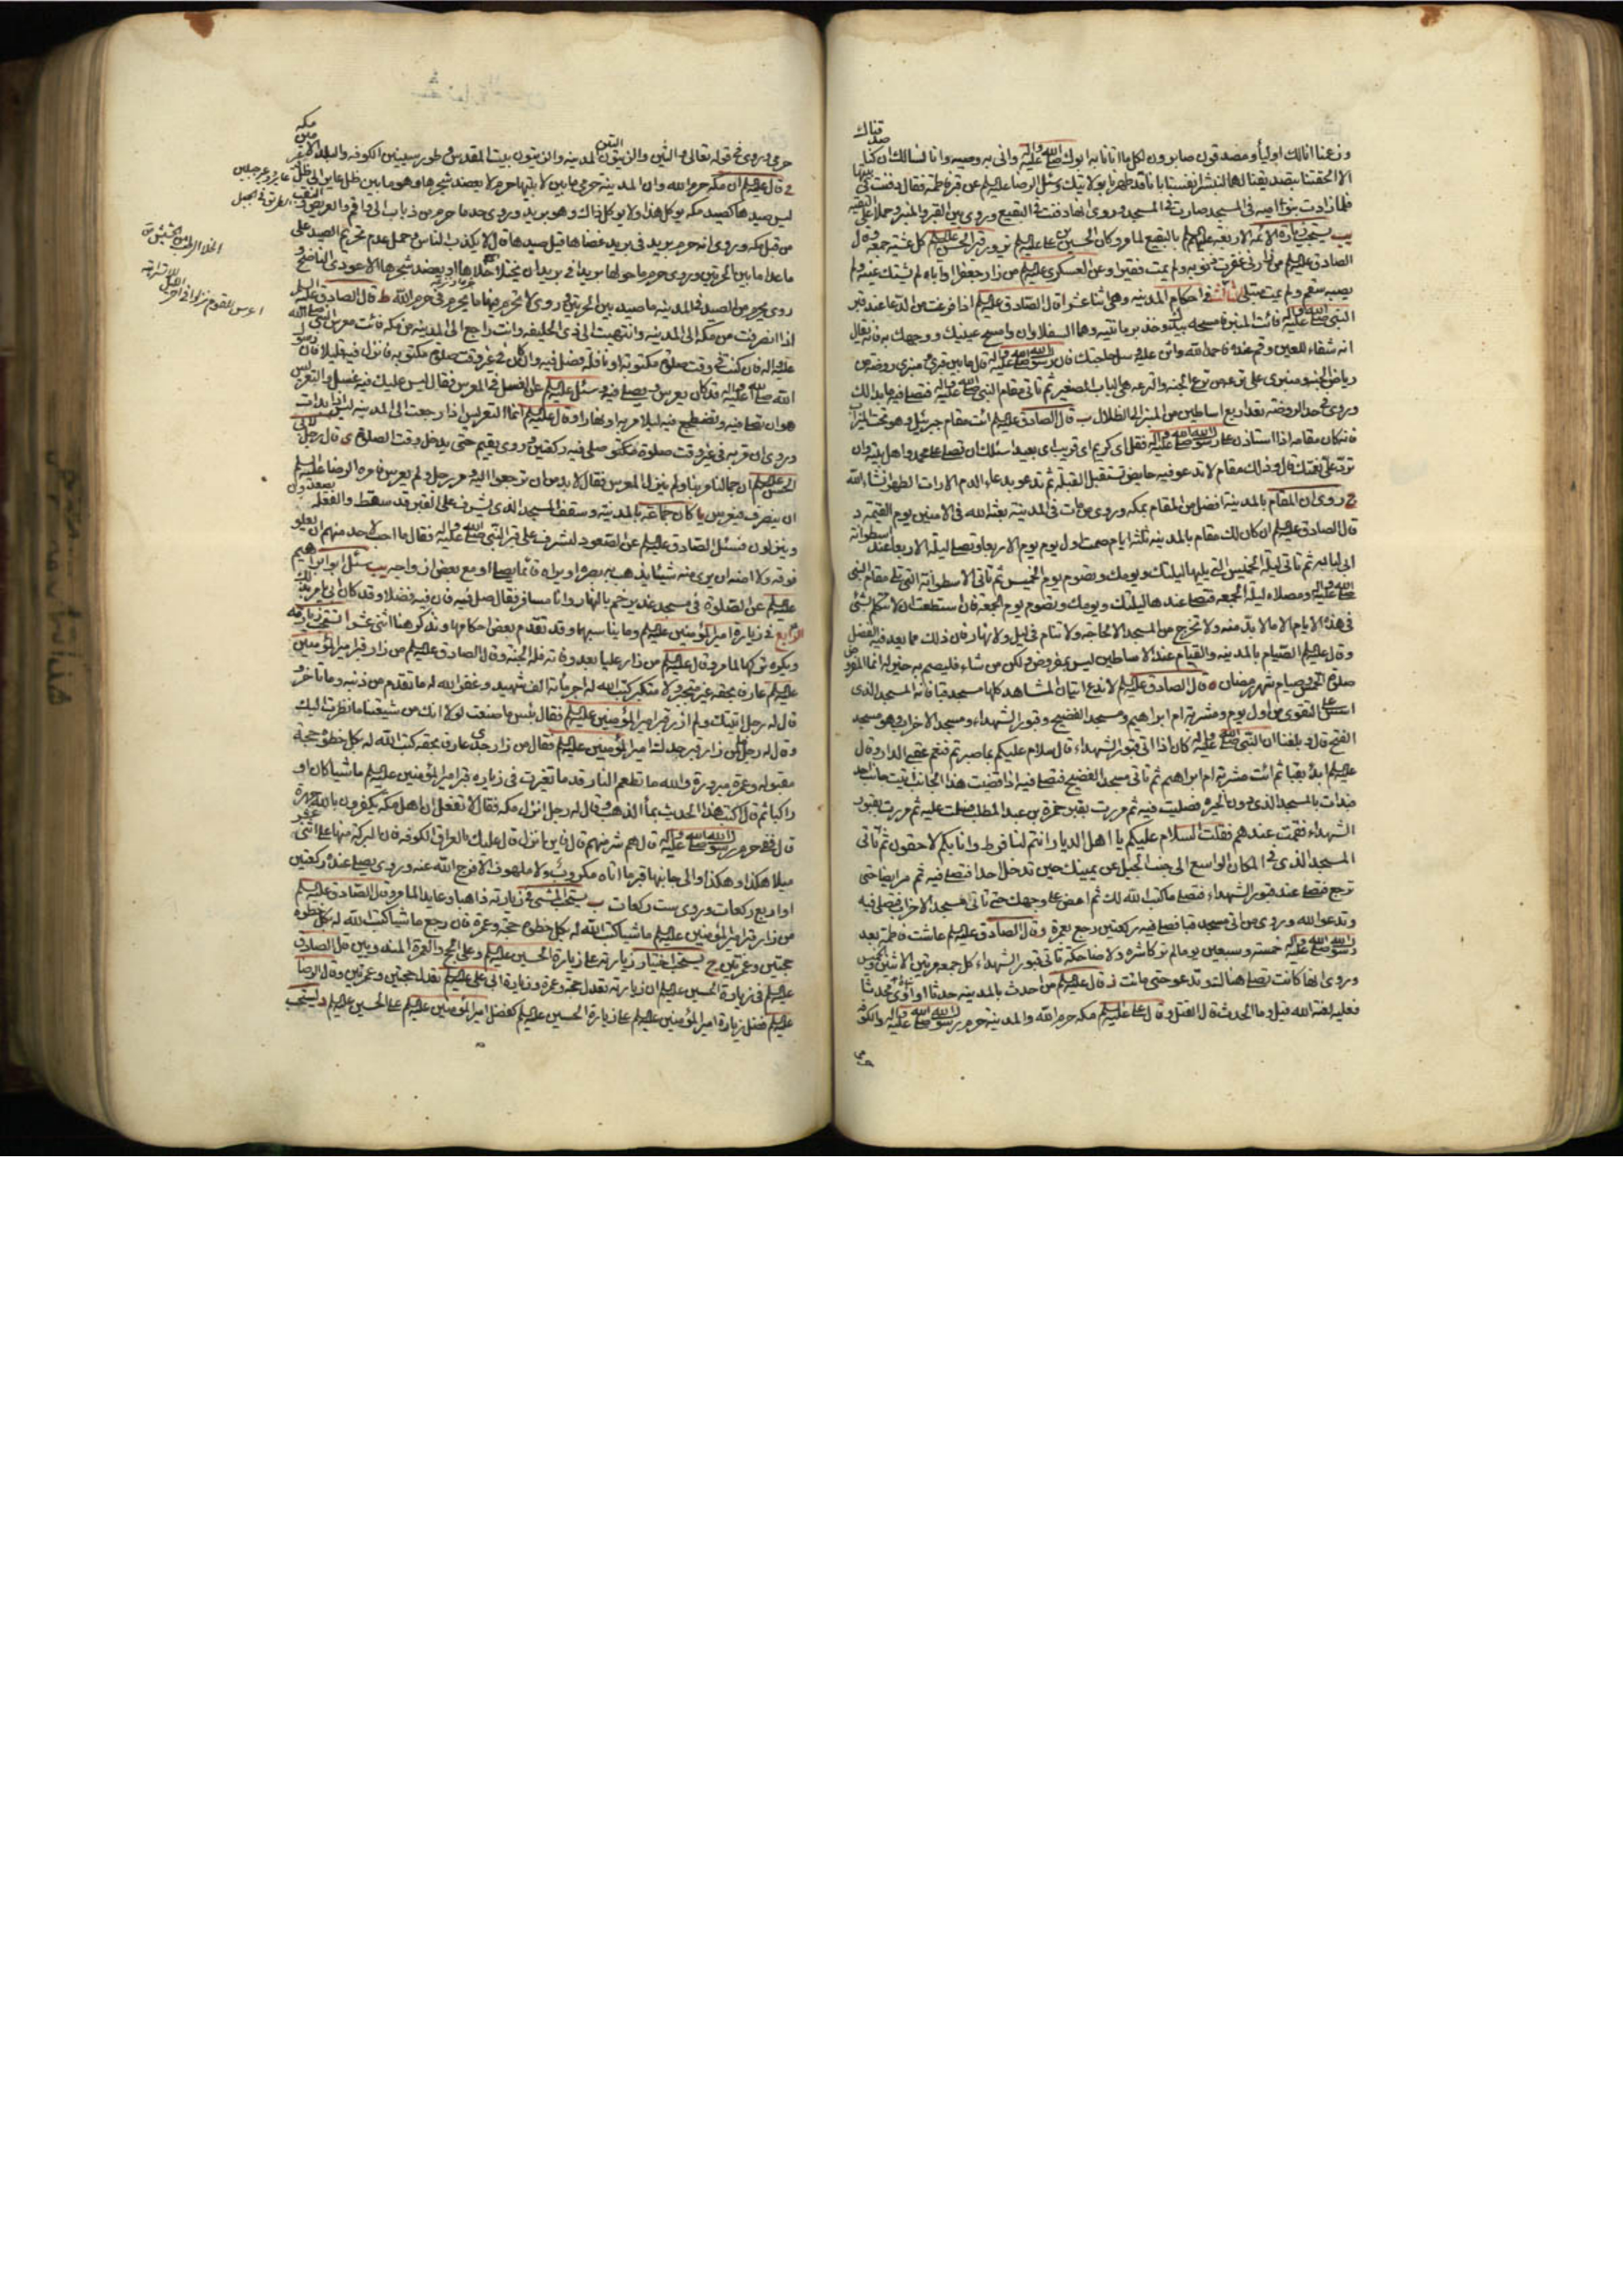 وزعمنا انا لك اوليآء ومصدقون صابرون لكل ما اتانا به ابوك صلى الله عليه واله واتى به وصيه وانا نسألك ان كنا صدقناك
الا الحقتنا بتصديقنا لهما لنبشر انفسنا بانا قد طهرنا بولايتك وسئل الرضا عليه السلم عن قبر فاطمة فقال دفنت في بيتها
فلما زادت بنو امية في المسجد صارت في المسجد وروى انها دفنت في البقيع وروى بين القبر والمنبر وحملا على التقيه
يب يستحب زيارة الائمة الاربعة عليهم السلم بالبقيع لما مر وكان الحسين بن على عليه السلم يزور قبر الحسن عليه السلم كل عشية جمعة وقال
الصادق عليه السلم من زارنى غفرت ذنوبه ولم يمت فقيرا وعن العسكرى عليه السلم من زار جعفرا واباه لم يشتك عينه ولم
يصبه سقم ولم يمت مبتلى الثالث في احكام المدينة وهى اثنا عشر ا قال الصادق عليه السلم اذا فرغت من الدعا عند قبر
النبى صلى الله عليه واله فائت المنبر فامسحه بيدك وخذ برمانتيه وهما السفلاوان وامسح عينيك ووجهك به فانه يقال
انه شفاء للعين وقم عنده فاحمد الله واثن عليه وسل حاجتك فان رسول الله صلى الله عليه واله قال ما بين قبرى ومنبرى روضة من
رياض الجنة ومنبرى على ترعة من ترع الجنة والترعة هى الباب الصغير ثم تأتى مقام النبى صلى الله عليه واله فتصلى فيه ما بدا لك
وروى في حد الروضة بعد اربع اساطين من المنبر الى الظلال ب قال الصادق عليه السلم ائت مقام جبرئيل وهو تحت الميزاب
فانه كان مقامه اذا استاذن على رسول الله صلى الله عليه واله فقل اى كريم اى قريب اى بعيد اسئلك ان تصلى على محمد واهل بيته وان
ترد على نعمتك قال وذلك مقام لا تدعو فيه حايض تستقبل القبلة ثم تدعو بدعاء الدم الا رات الطهر انشاء الله
ج روى ان المقام بالمدينة افضل من المقام بمكة وروى من مات في المدينة بعثه الله في الامنين يوم القيمة د
قال الصادق عليه السلم ان كان لك مقام بالمدينة ثلثة ايام صمت اول يوم يوم الاربعا وتصلى ليلة الاربعا عند اسطوانة
ابى لبابه ثم تأتى ليلة الخميس التى يليها ليلتك ويومك وتصوم يوم الخميس ثم تأتى الاسطوانة التى تلى مقام النبى
صلى الله عليه واله ومصلاه ليلة الجمعة فتصلى عندها ليلتك ويومك وتصوم يوم الجمعة فان استطعت ان لا تتكلم بشئ
في هذه الايام الا ما لا بد منه ولا تخرج من المسجد الا لحاجة ولا تنام في ليل ولا نهار فان ذلك مما يعد فيه الفضل
وقال عليه السلم الصيام بالمدينة والقيام عند الاساطين ليس بمفروض ولكن من شاء فليصم به خير له انما المفروض
صلوة الخمس وصيام شهر رمضان ه قال الصادق عليه السلم لا تدع اتيان المشاهد كلها مسجد قبا فانه المسجد الذى
اسس على التقوى من اول يوم ومشربة ام ابراهيم ومسجد الفضيخ وقبور الشهداء ومسجد الاحزاب وهو مسجد
الفتح قال وبلغنا ان النبى صلى الله عليه واله كان اذا اتى قبور الشهداء قال سلام عليكم بما صبرتم فنعم عقبى الدار وقال
عليه السلم ابدأ بقبا ثم ائت مشربة ام ابراهيم ثم تأتى مسجد الفضيخ فتصلى فيه اذا قضيت هذا الجانب اتيت جانب احد
فبدات بالمسجد الذى دون الحره فصليت فيه ثم مررت بقبر حمزة بن عبد المطلب فسلمت عليه ثم مررت بقبور
الشهداء فقمت عندهم فقلت السلام عليكم يا اهل الديار انتم لنا فرط وانا بكم لاحقون ثم تأتى
المسجد الذى في المكان الواسع الى جنب الجبل عن يمينك حين تدخل احدا فتصلى فيه ثم مر ايضا حتى
ترجع فتصلى عند قبور الشهداء فتصلى ما كتب الله لك ثم امض على وجهك حتى تأتى مسجد الاحزاب فصلى فيه
وتدعو الله وروى من اتى مسجد قبا فصلى فيه ركعتين رجع بعمرة و قال الصادق عليه السلم عاشت فاطمة بعد
رسول الله صلى الله عليه واله خمسة وسبعين يوما لم تر كاشرة ولا ضاحكة تأتى قبور الشهداء كل جمعة مرتين الاثنين والخميس
وروى انها كانت تصلى هناك وتدعو حتى ماتت ز قال عليه السلم من احدث بالمدينة حدثا او آوى محدثا
فعليه لعنة الله قيل وما الحدث قال القتل وقال على عليه السلم مكة حرم الله والمدينة حرم رسول الله صلى الله عليه واله والكوفة
حرمى وروى في قوله تعالى والتين والزيتون التين المدينة والزيتون بيت المقدس وطور سينين الكوفه والبلد الامين مكه
ح قال عليه السلم ان مكة حرم الله وان المدينة حرمى ما بين لابتيها حرم لا يعضد شجرها وهو ما بين ظل عاير الى ظل وعير
ليس صيدها كصيد مكة يوكل هذا ولا يوكل ذاك وهو بريد وروى حد ما حرم من ذباب الى واقم والعريض والنقب
من قبل مكة وروى انه حرم بريد في بريد غضاها قيل صيدها قال لا يكذب الناس وحمل عدم تحريم الصيد على
ما عدا ما بين الحرتين وروى حرم ما حولها بريدا في بريد ان يختلا خلاها او يعضد شجرها الا عودى الناضح و
روى يحرم من الصيد في المدينة ما صيد بين الحرتين وروى لا تحرم منها ما يحرم في حرم الله ط قال الصادق عليه السلم
اذا انصرفت من مكة الى المدينة وانتهيت الى ذى الحليفه وانت راجع الى المدينة من مكة فائت معرس النبى صلى الله
عليه واله فان كنت في وقت صلوة مكتوبة او نافلة فصل فيه وان كان في غير وقت صلوة مكتوبة فانزل فيه قليلا فان رسول
الله صلى الله عليه واله قد كان يعرس ويصلى فيه وسئل عليه السلم عن الغسل في المعرس فقال ليس عليك فيه غسل والتعريس
هو ان تصلى فيه وتضطجع فيه ليلا مر به او نهارا وقال عليه السلم انما التعريس اذا رجعت الى المدينة ليس اذا بدات
وروى ان مر به في غير وقت صلوة مكتوبه صلى فيه ركعتين وروى يقيم حتى يدخل وقت الصلوة ى قال رجل لابى
الحسن عليه السلم ان جمالنا مر بنا ولم ينزل المعرس فقال لا بد من ان ترجعوا اليه ومر رجل ولم يعرس فامره الرضا عليه السلم
ان ينصرف فيعرس يا كان جماعة بالمدينة وسقف المسجد الذى يشرف على القبر قد سقط والفعلة يصعدون
وينزلون فسئل الصادق عليه السلم عن الصعود لنشرف على قبر النبى صلى الله عليه واله فقال ما احب لاحد منهم ان يعلو
فوقه ولا امنه ان يرى منه شيئا يذهب به بصره او يراه قائما يصلى او مع بعض ازواجه يب سئل ابو ابراهيم
عليه السلم عن الصلوة في مسجد غدير خم بالنهار وانا مسافر فقال صل فيه فان فيه فضلا وقد كان ابى يامر بذلك
الرابع في زيارة امير المؤمنين عليه السلم وما يناسبها وقد تقدم بعض احكامها ونذكر هنا اثنى عشر ا تستحب زيارته
ويكره تركها لما مر وقال عليه السلم من زار عليا بعد وفاته فله الجنة وقال الصادق عليه السلم من زار قبر امير المؤمنين
عليه السلم عارفا بحقه غير متجبر ولا متكبر كتب الله له اجر مأئة الف شهيد وغفر الله له ما تقدم من ذنبه وما تأخر و
قال له رجل اتيتك ولم ازر قبر امير المؤمنين عليه السلم فقال بئس ما صنعت لولا انك من شيعتنا ما نظرت اليك
وقال له رجل من زار قبر جدك امير المؤمنين عليه السلم فقال من زار جدى عارفا بحقه كتب الله له بكل خطوة حجة
مقبولة وعمرة مبرورة والله ما تطعم النار قدما تغبرت في زياره قبر امير المؤمنين عليه السلم ماشيا كان او
راكبا ثم قال اكتب هذا الحديث بمأ الذهب وقال له رجل انزل مكة فقال لا تفعل ان اهل مكة يكفرون بالله جهرة
قال ففى حرم رسول الله صلى الله عليه واله قال هم شر منهم قال فاين انزل قال عليك بالعراق الكوفة فان البركة منها على اثنى عشر
ميلا هكذا وهكذا والى جانبها قبر ما اتاه مكروب ولا ملهوف الا فرج الله عنه وروى يصلى عنده ركعتين
او اربع ركعات وروى ست ركعات ب يستحب المشى في زيارته ذاهبا وعايدا لما مر وقال الصادق عليه السلم
من زار قبر امير المؤمنين عليه السلم ماشيا كتب الله له بكل خطوة حجة وعمرة فان رجع ماشيا كتب الله له بكل خطوة
حجتين وعمرتين ج يستحب اختيار زيارته على زيارة الحسين عليه السلم وعلى الحج والعمرة المندوبين قال الصادق
عليه السلم في زيارة الحسين عليه السلم ان زيارته تعدل حجة وعمرة وزيارة ابى على عليه السلم تعدل حجتين وعمرتين وقال الرضا
عليه السلم فضل زيارة امير المؤمنين عليه السلم على زيارة الحسين عليه السلم كفضل امير المؤمنين عليه السلم على الحسين عليه السلم د يستحب
عاير وعير جبلين
الطريق في الجبل
الخلا الرطب من الحشيش
اعرس القوم نزلوا في اخر الليل للاستراحة